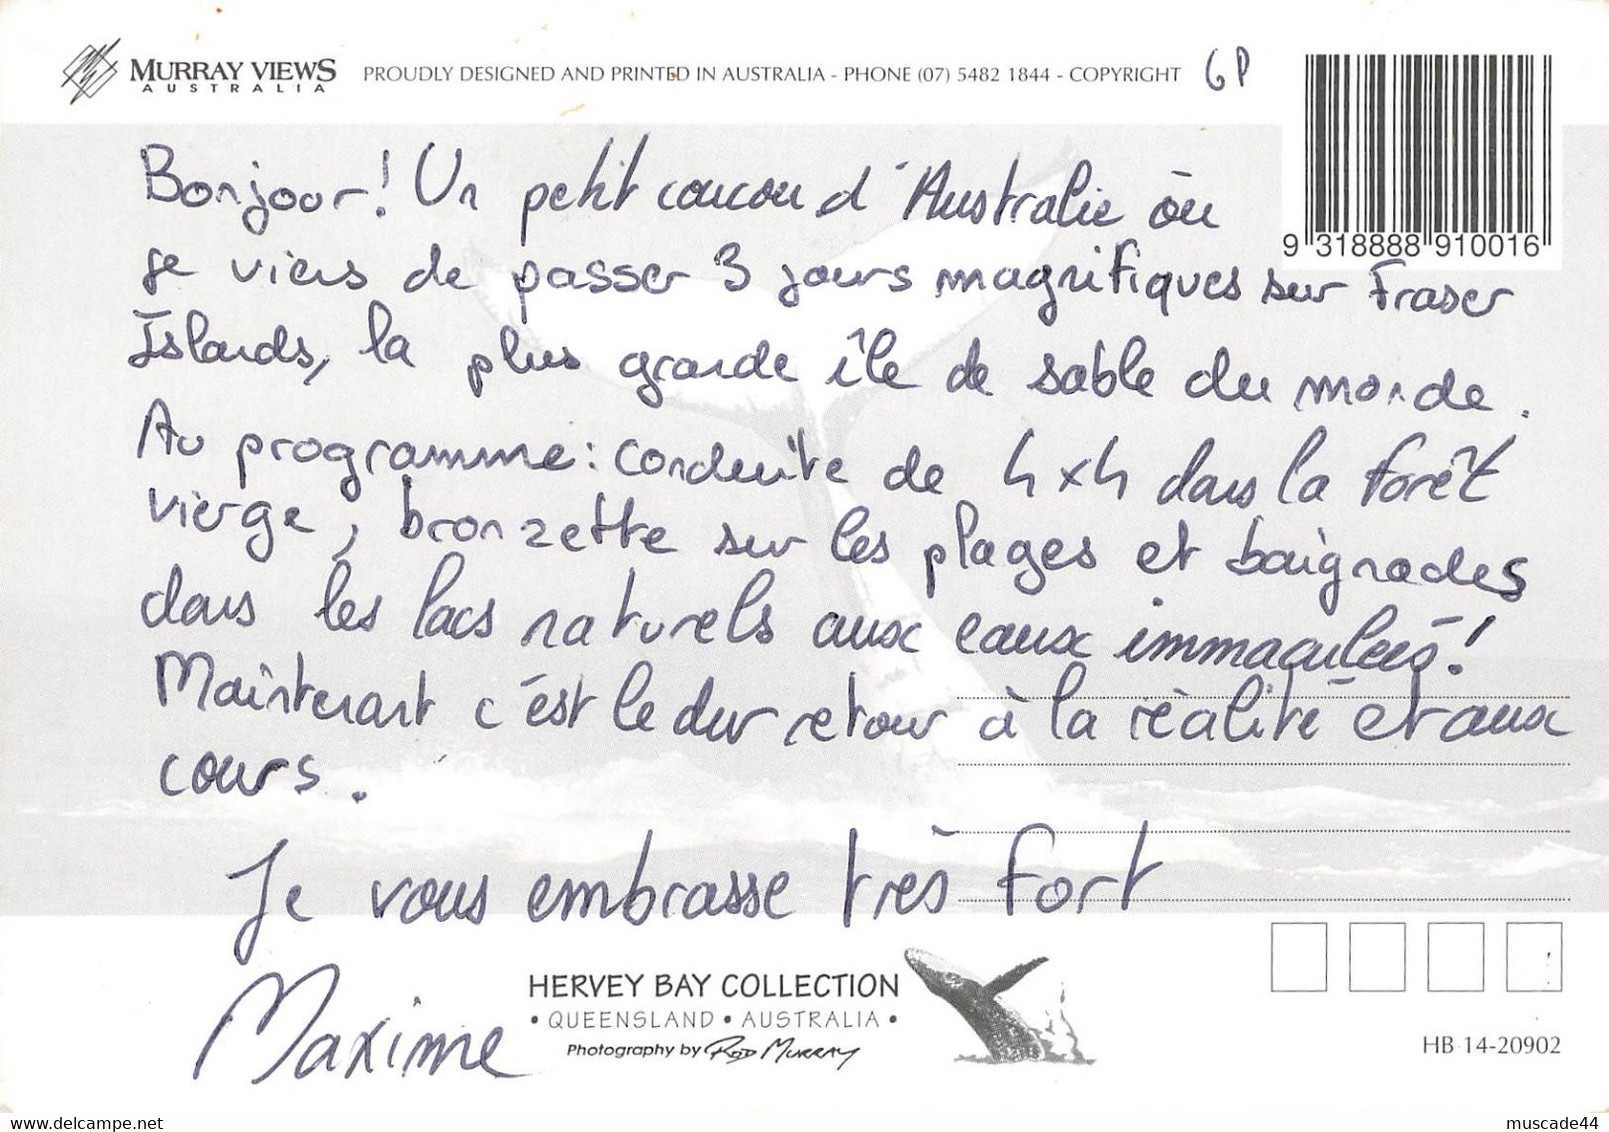 MURRAY VIEWS
AUSTRALIA
PROUDLY DESIGNED AND PRINTED IN AUSTRALIA - PHONE (07) 5482 1844 - COPYRIGHT
GP
9 318888 910016
Bonjour! Un petit coucou d'Australie où
je viens de passer 3 jours magnifiques sur Fraser
Islands, la plus grande île de sable du monde.
Au programme: conduite de 4x4 dans la forêt
vierge, bronzette sur les plages et baignades
dans les lacs naturels aux eaux immaculées!
Maintenant c'est le dur retour à la réalité et aux
cours.
Je vous embrasse très fort
Maxime
HERVEY BAY COLLECTION
• QUEENSLAND • AUSTRALIA •
Photography by ROD MURRAY
HB 14-20902
delcampe.net
muscade44